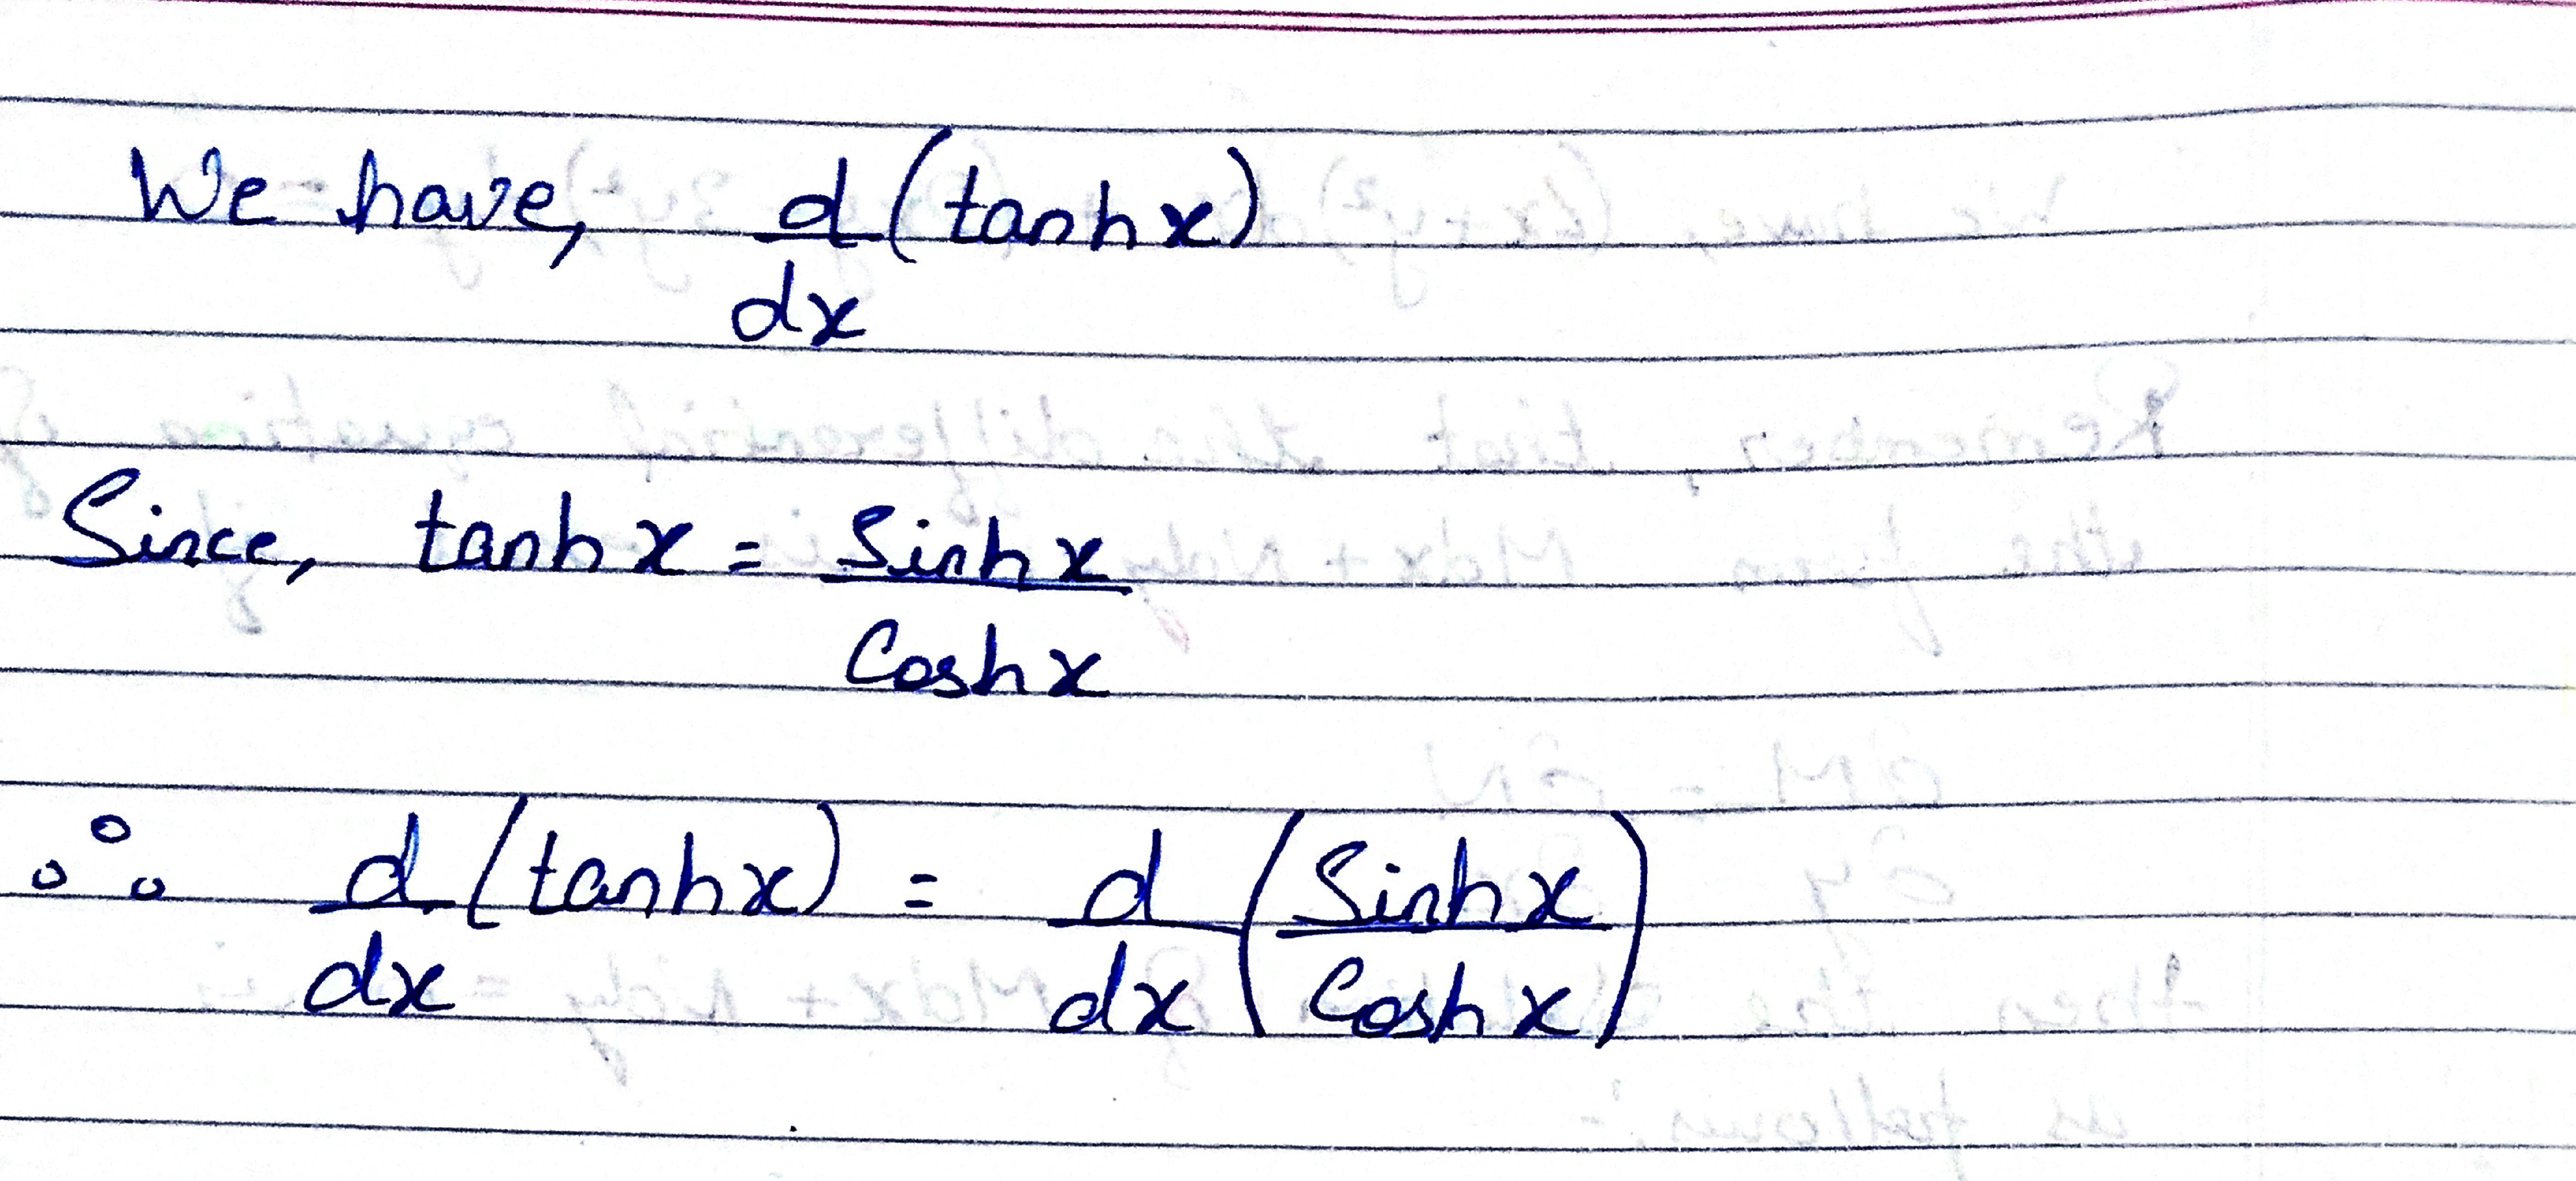 We have, d/dx (tanhx)
Since, tanhx = Sinhx/Coshx
∴ d/dx (tanhx) = d/dx (Sinhx/Coshx)